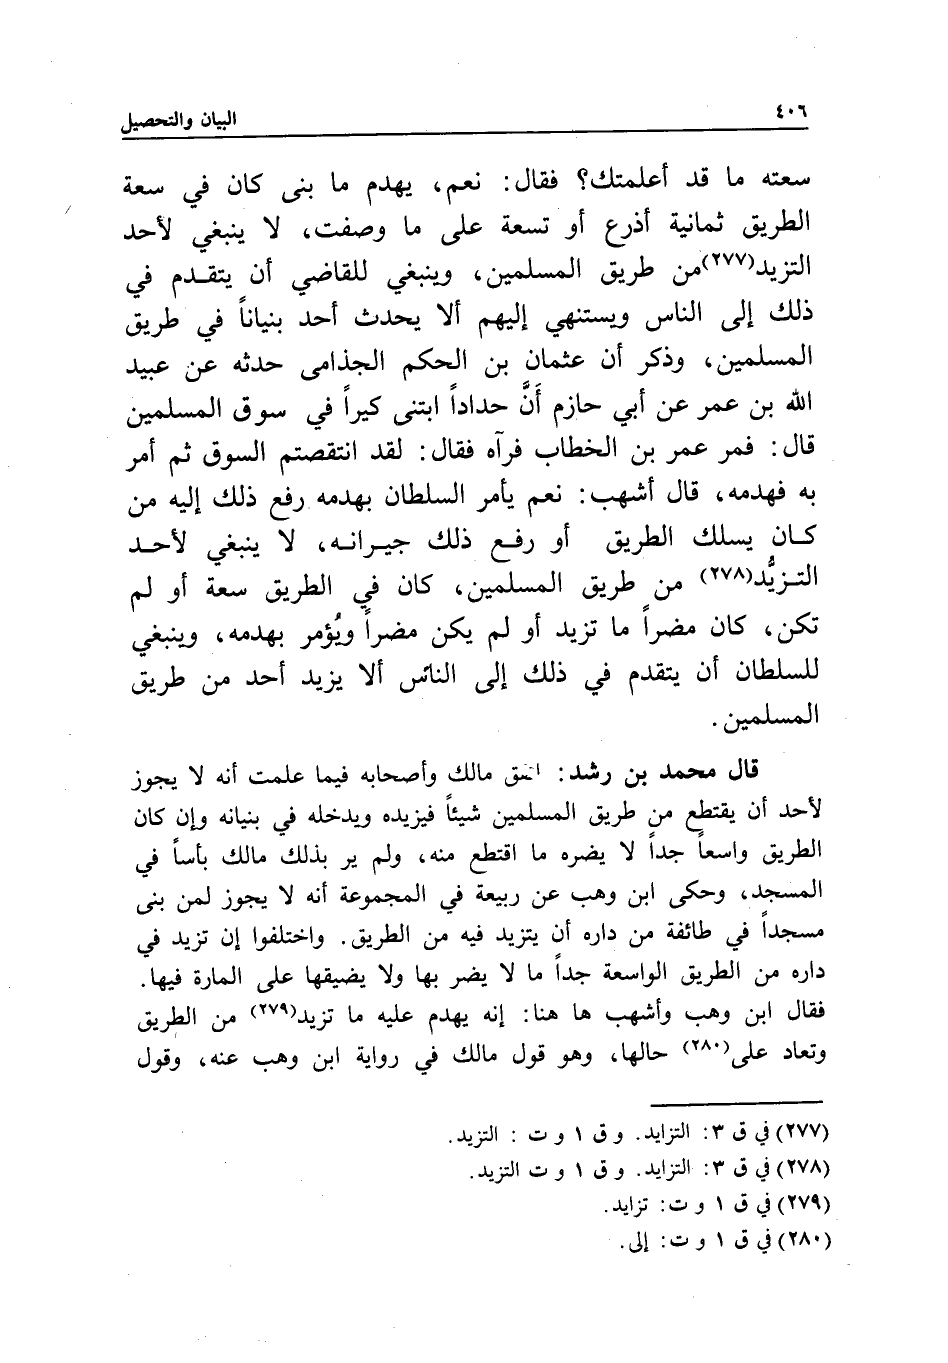 ٤٠٦
البيان والتحصيل
سعته ما قد أعلمتك؟ فقال: نعم، يهدم ما بنى كان في سعة
الطريق ثمانية أذرع أو تسعة على ما وصفت، لا ينبغي لأحد
التزيد(٢٧٧) من طريق المسلمين، وينبغي للقاضي أن يتقدم في
ذلك إلى الناس ويستنهي إليهم ألا يحدث أحد بنياناً في طريق
المسلمين، وذكر أن عثمان بن الحكم الجذامى حدثه عن عبيد
الله بن عمر عن أبي حازم أَنَّ حداداً ابتنى كيراً في سوق المسلمين
قال: فمر عمر بن الخطاب فرآه فقال: لقد انتقصتم السوق ثم أمر
به فهدمه، قال أشهب: نعم يأمر السلطان بهدمه رفع ذلك إليه من
كان يسلك الطريق أو رفع ذلك جيرانه، لا ينبغي لأحد
التزيُّد(٢٧٨) من طريق المسلمين، كان في الطريق سعة أو لم
تكن، كان مضراً ما تزيد أو لم يكن مضراً ويُؤمر بهدمه، وينبغي
للسلطان أن يتقدم في ذلك إلى الناس ألا يزيد أحد من طريق
المسلمين.
قال محمد بن رشد: مالك وأصحابه فيما علمت أنه لا يجوز
لأحد أن يقتطع من طريق المسلمين شيئاً فيزيده ويدخله في بنيانه وإن كان
الطريق واسعاً جداً لا يضره ما اقتطع منه، ولم ير بذلك مالك بأساً في
المسجد، وحكى ابن وهب عن ربيعة في المجموعة أنه لا يجوز لمن بنى
مسجداً في طائفة من داره أن يتزيد فيه من الطريق. واختلفوا إن تزيد في
داره من الطريق الواسعة جداً ما لا يضر بها ولا يضيقها على المارة فيها.
فقال ابن وهب وأشهب ها هنا: إنه يهدم عليه ما تزيد(٢٧٩) من الطريق
وتعاد على(٢٨٠) حالها، وهو قول مالك في رواية ابن وهب عنه، وقول
(٢٧٧) في ق ٣: التزايد. و ق ١ و ت : التزيد.
(٢٧٨) في ق ٣: التزايد. و ق ١ و ت التزيد.
(٢٧٩) في ق ١ و ت: تزايد.
(٢٨٠) في ق ١ و ت: إلى.